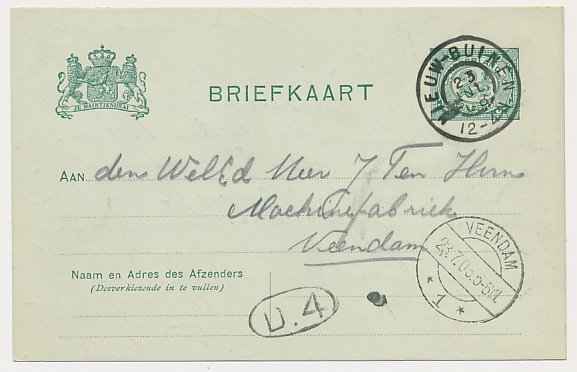 JE MAINTIENDRAI
BRIEFKAART
NIEUW-BUINEN
23
12-4N
AAN den WelEd Heer J. Ten Horn
Machinefabriek
Veendam
VEENDAM
23.7.0 5-6N
* 1 *
Naam en Adres des Afzenders
(Desverkiezende in te vullen)
D.4